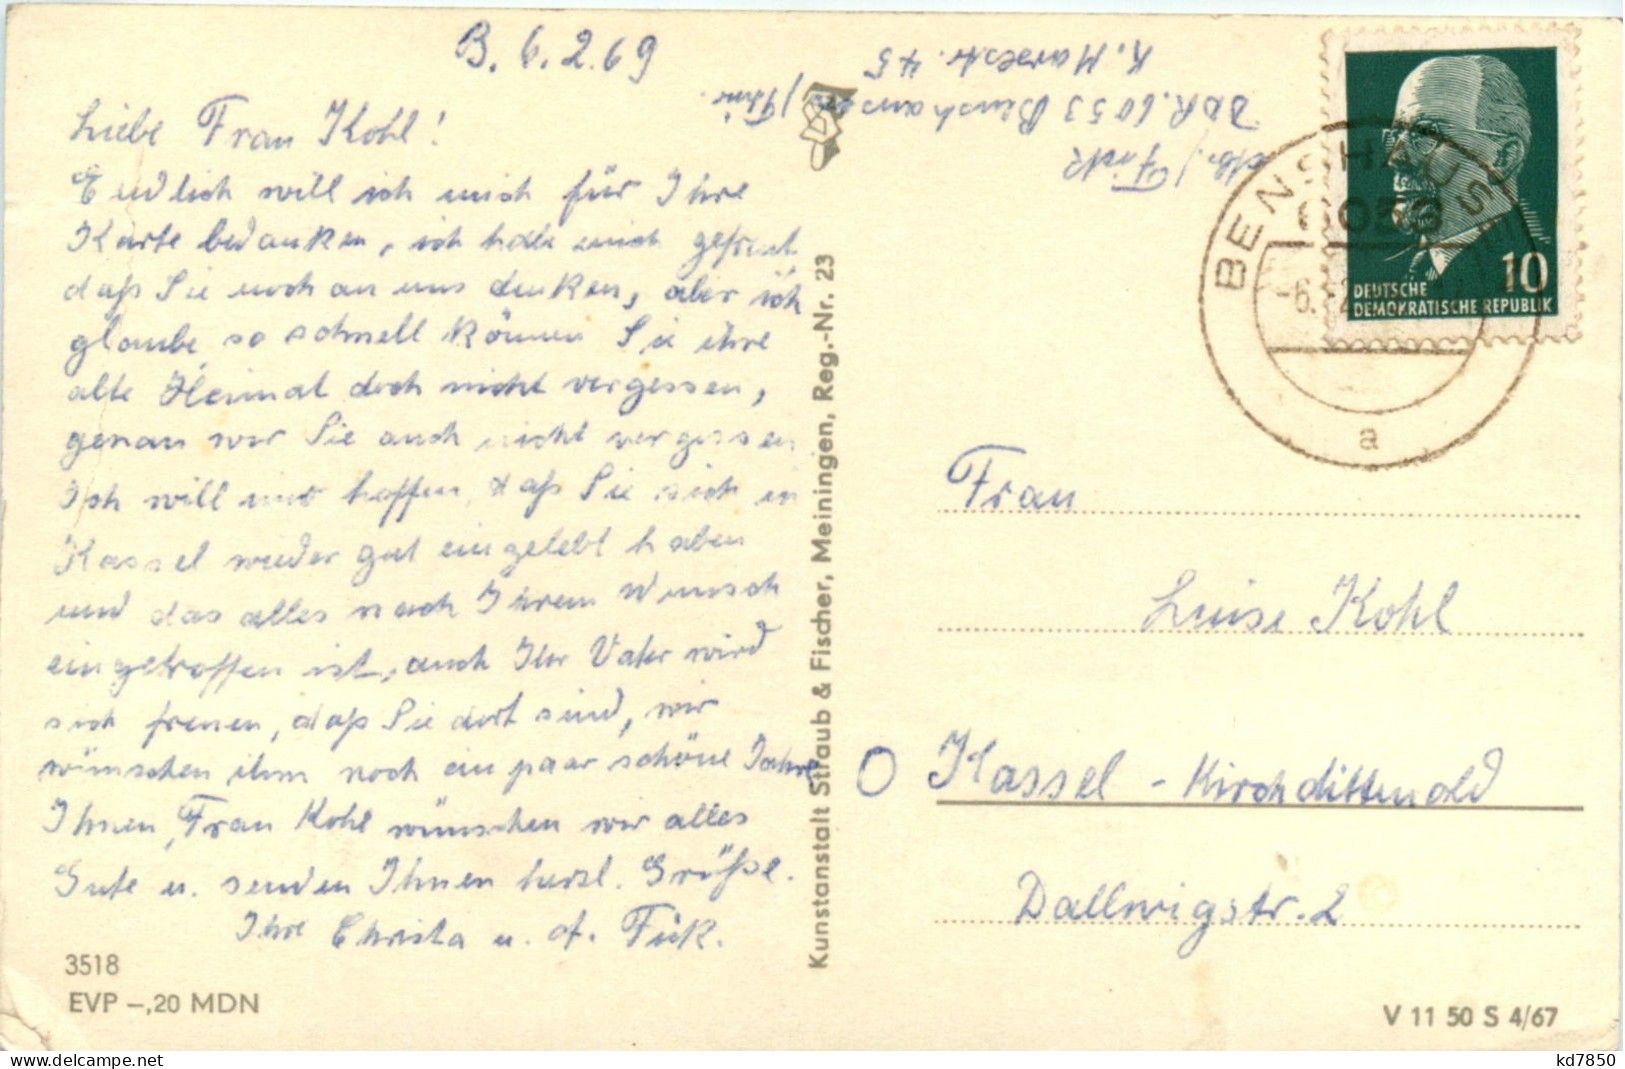 B. 6.2.69
Liebe Frau Kohl!
Endlich will ich mich für Ihre
Karte bedanken, ich habe mich gefreut
daß Sie noch an uns denken, aber ich
glaube, so schnell können Sie ihre
alte Heimat doch nicht vergessen,
genau wie Sie auch nicht vergessen
Ich will nur hoffen, daß Sie sich in
Kassel wieder gut eingelebt haben
und das alles nach Ihrem Wunsch
eingetroffen ist, auch Ihr Vater wird
sich freuen, daß Sie dort sind, wir
wünschen ihm noch ein paar schöne Jahre
Ihnen, Frau Kohl wünschen wir alles
Gute u. senden Ihnen herzl. Grüße.
Ihre Christa u. A. Fick.
3518
EVP –,20 MDN
Kunstanstalt Straub & Fischer, Meiningen, Reg.-Nr. 23
Abs./ Fick
DDR. 6053 Benshausen/Thür.
K. Marxstr. 45
BENSHAUSEN
6053
-6.-2
a
10
DEUTSCHE
DEMOKRATISCHE REPUBLIK
Frau
Luise Kohl
O Kassel - Kirchdittmold
Dallwigstr. 2
V 11 50 S 4/67
kd7850